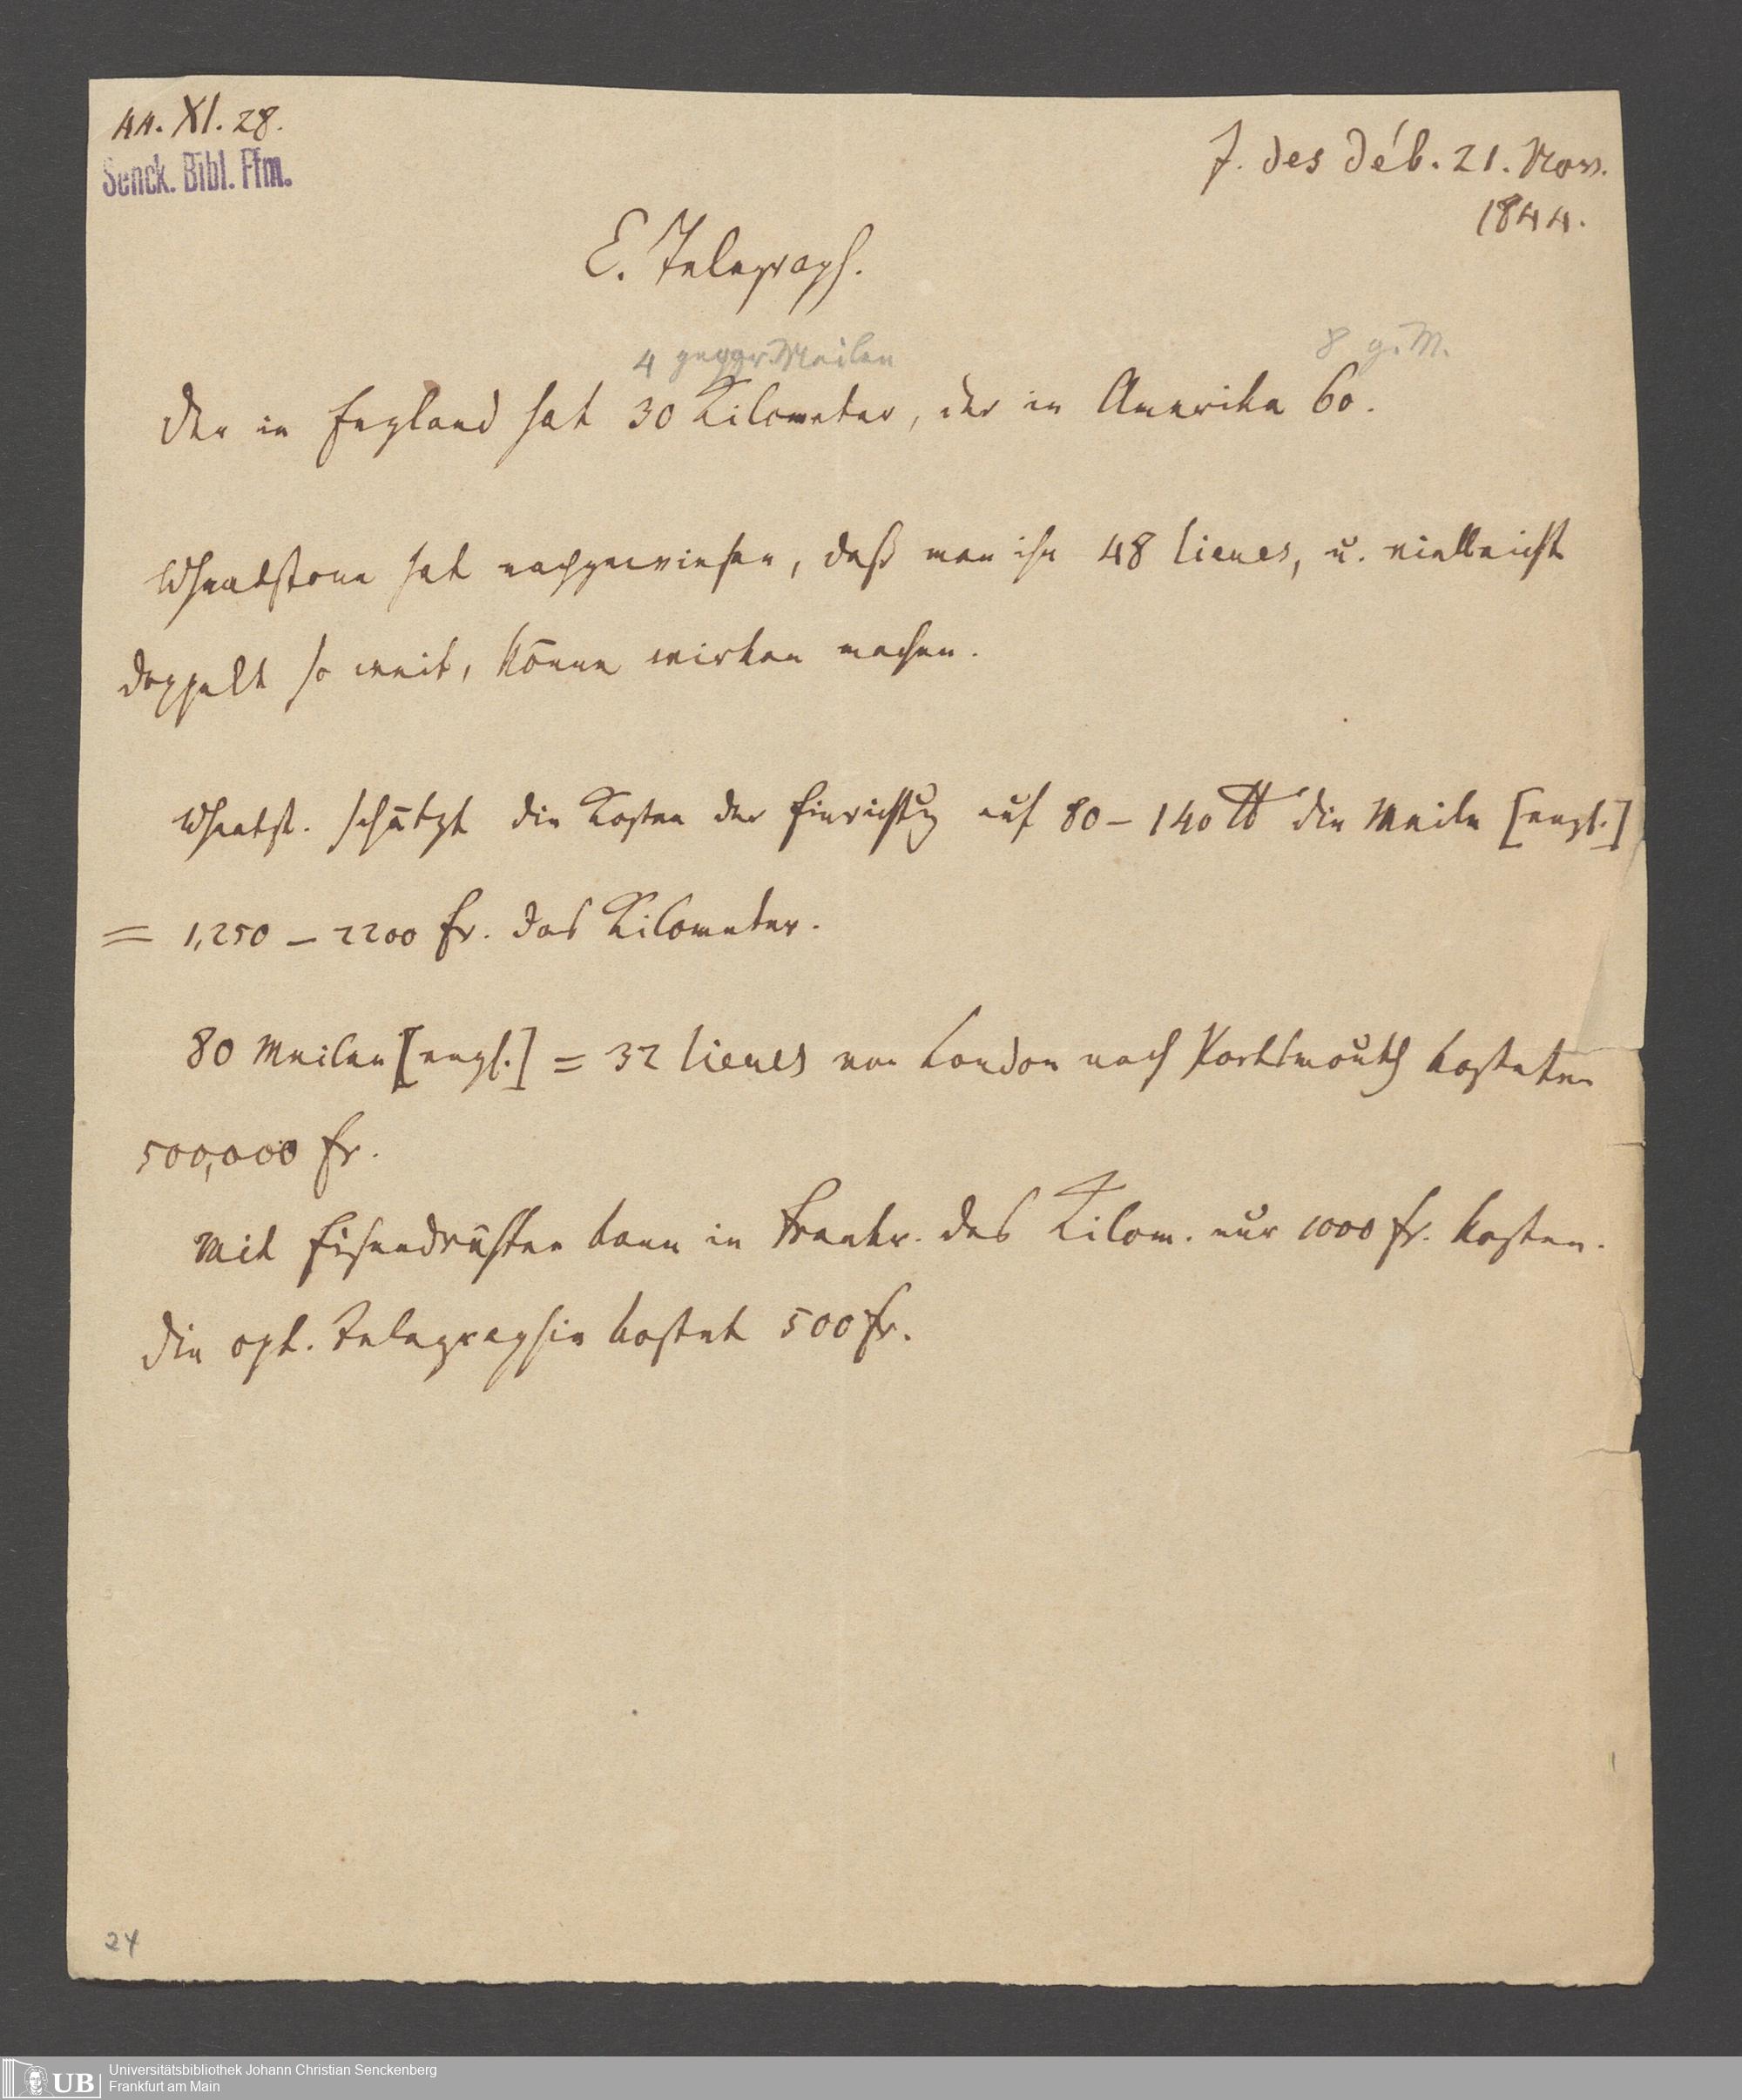 44. XI. 28.
Senck. Bibl. Ffm.
J. des Déb. 21. Nov.
1844.
E. Telegraph.
4 geogr. Meilen
8 g. M.
Der in England hat 30 Kilometer, der in Amerika 60.
Wheatstone hat nachgewiesen, daß man ihn 48 lieues, u. vielleicht
doppelt so weit, könne wirken machen.
Wheatst. schätzt die Kosten der Einrichtung auf 80 – 140 ₶ die Meile [engl.]
= 1,250 – 2200 fr. das Kilometer.
80 Meilen [engl.] = 32 lieues von London nach Portsmouth kosteten
500,000 fr.
Mit Eisendrähten kann in Frankr. das Kilom. nur 1000 fr. kosten.
Die opt. Telegraphie kostet 500 fr.
24
UB
Universitätsbibliothek Johann Christian Senckenberg
Frankfurt am Main